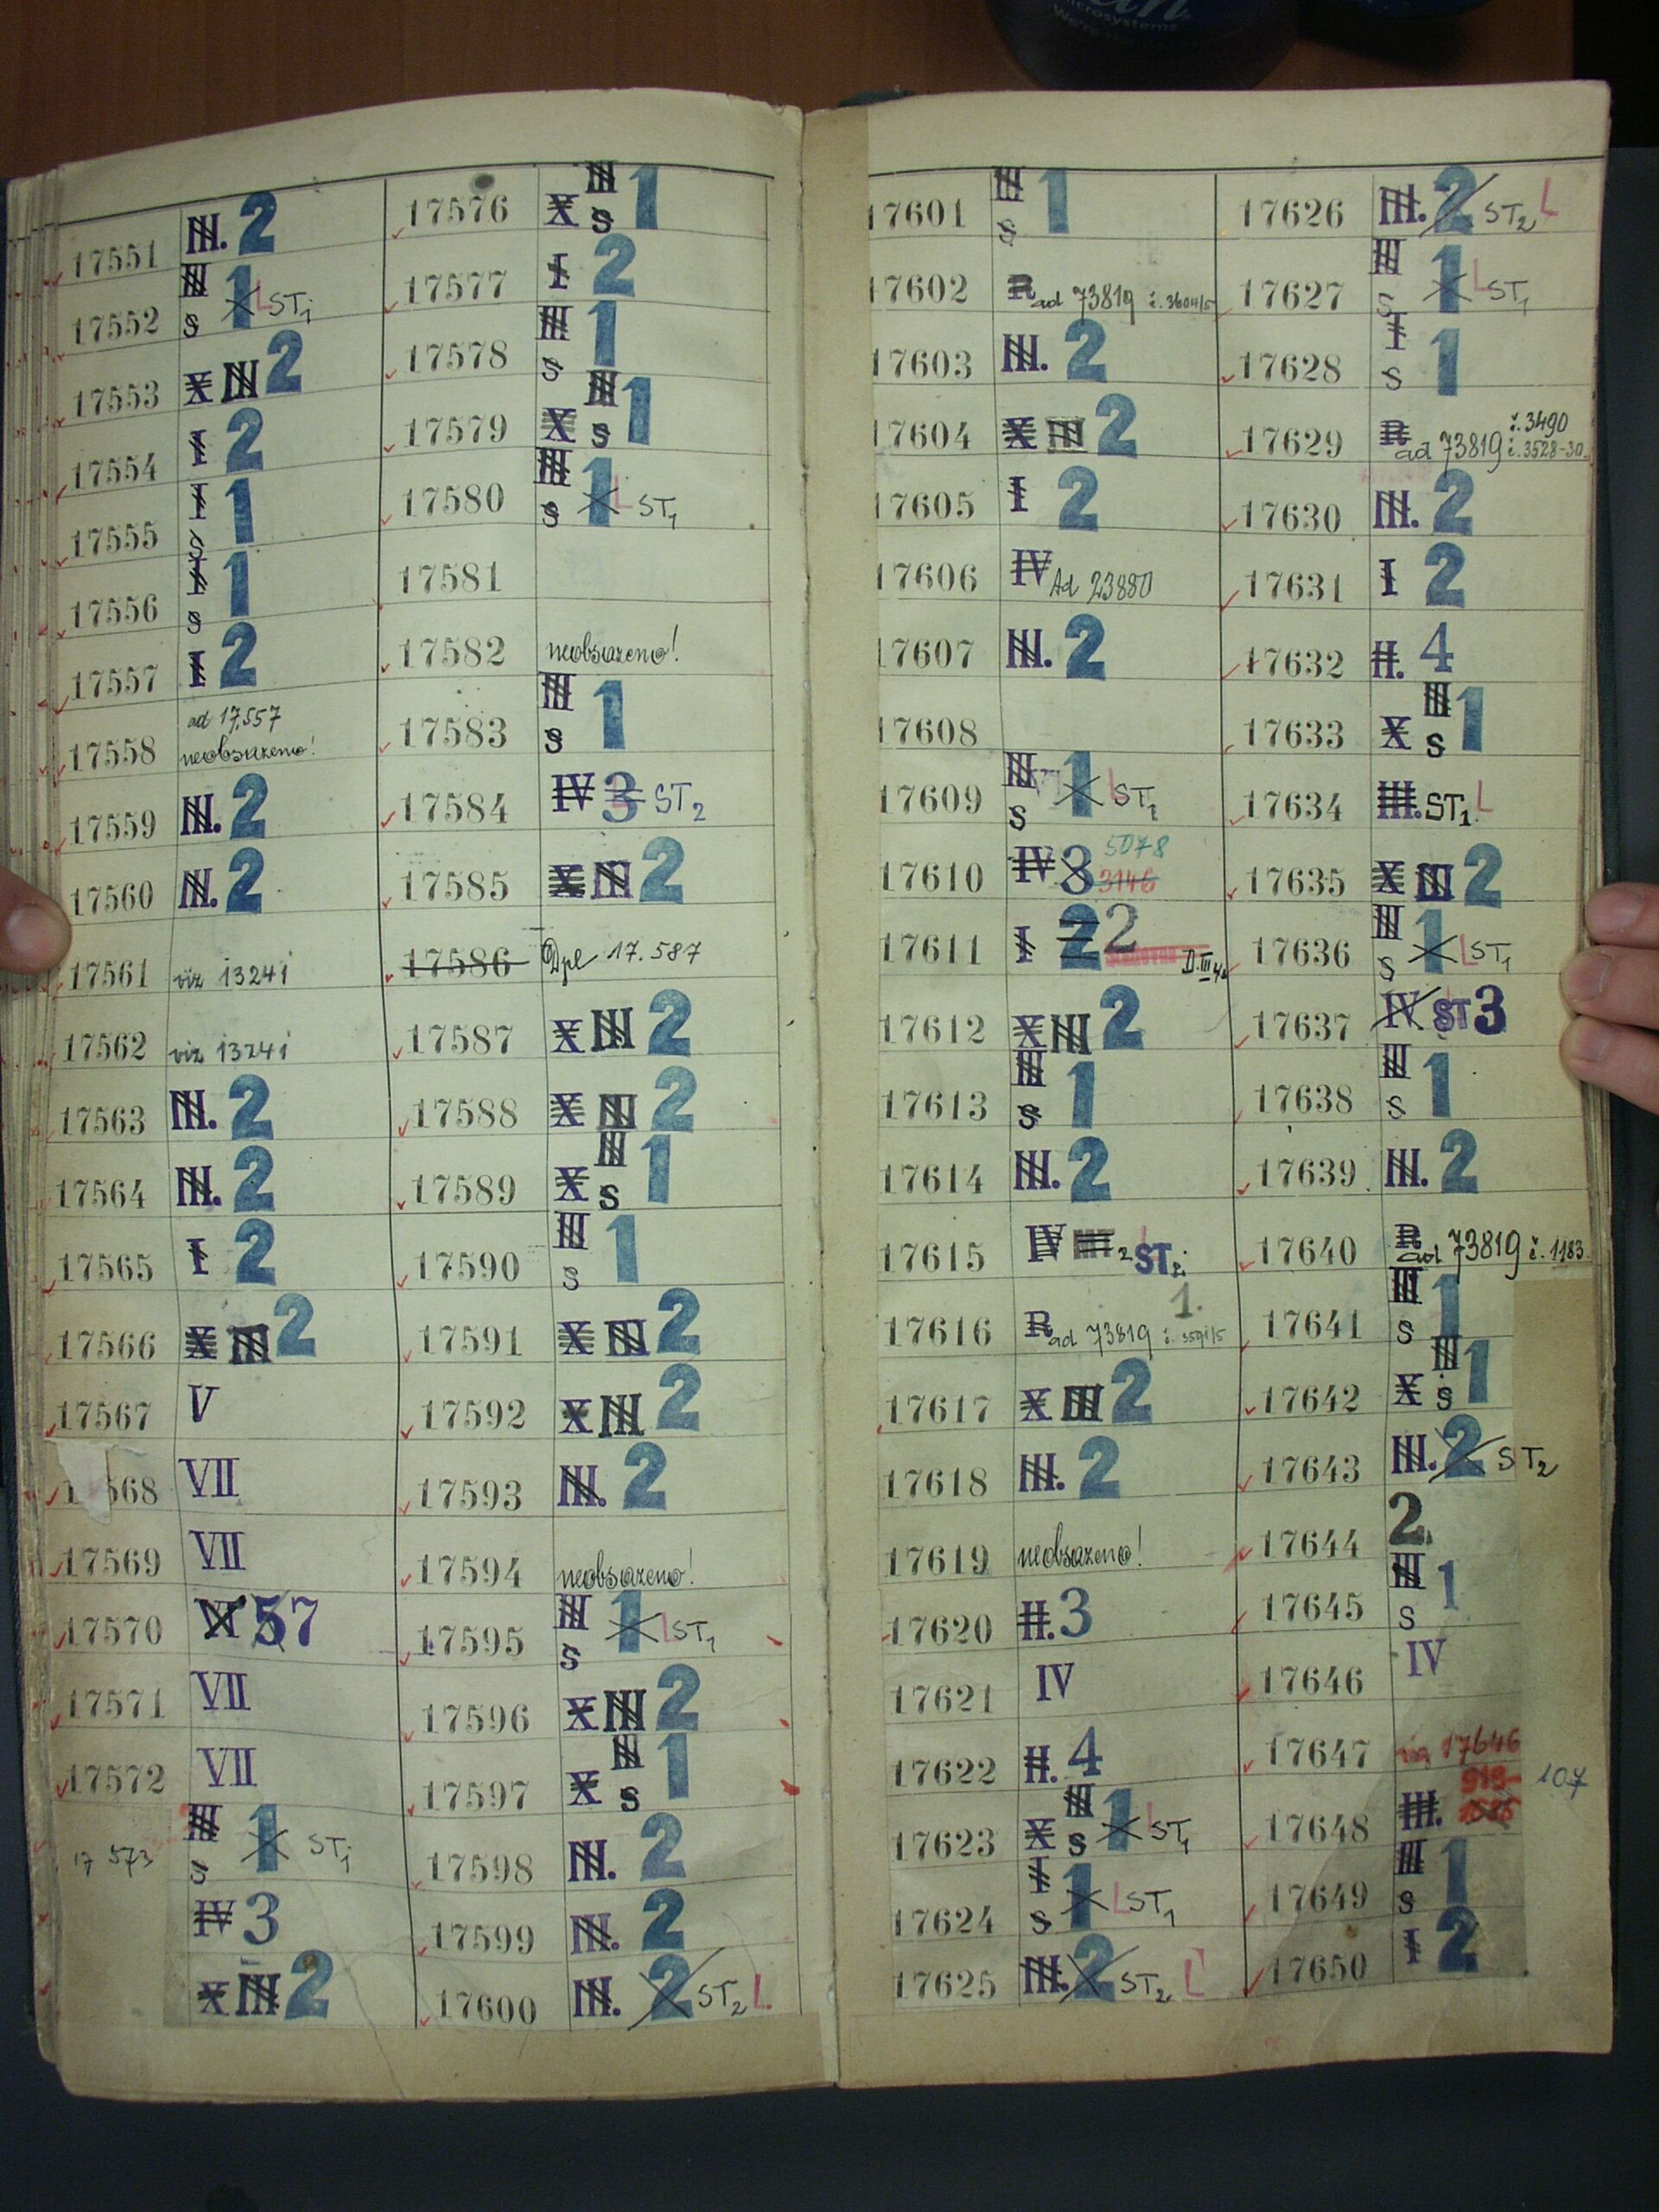 microsystems
17551 III. 2
17552 III S 1 L ST1
17553 X III 2
17554 I 2
17555 I S 1
17556 I S 1
17557 I 2
17558 ad 17,557 neobsazeno!
17559 III. 2
17560 III. 2
17561 viz 13241
17562 viz 13241
17563 III. 2
17564 III. 2
17565 I 2
17566 X III 2
17567 V
17568 VII
17569 VII
17570 VI 5 7
17571 VII
17572 VII
17573 III S 1 ST1
IV 3
X III 2
17576 X III S 1
17577 I 2
17578 III S 1
17579 X III S 1
17580 III S 1 L ST1
17581
17582 neobsazeno!
17583 III S 1
17584 IV 3 ST2
17585 X III 2
17586 Dpl 17.587
17587 X III 2
17588 X III 2
17589 X III S 1
17590 III S 1
17591 X III 2
17592 X III 2
17593 III. 2
17594 neobsazeno!
17595 III S 1 L ST1
17596 X III 2
17597 X III S 1
17598 III. 2
17599 III. 2
17600 III. 2 ST2 L
17601 III S 1
17602 R ad 73819 č. 3604/5
17603 III. 2
17604 X III 2
17605 I 2
17606 IV Ad 23880
17607 III. 2
17608
17609 III S 1 L ST1
17610 IV 3 3146 5078
17611 I 2 2 D.III
17612 X III 2
17613 III S 1
17614 III. 2
17615 IV III 2 ST2.
17616 R ad 73819 č. 3591/5 1.
17617 X III 2
17618 III. 2
17619 neobsazeno!
17620 II. 3
17621 IV
17622 II. 4
17623 X III S 1 L ST1
17624 I S 1 L ST1
17625 III. 2 ST2 L
17626 III. 2 ST2 L
17627 III S 1 L ST1
17628 I S 1
17629 R ad 73819 č. 3490 č. 3528-30
17630 III. 2
17631 I 2
17632 II. 4
17633 X III S 1
17634 III. ST1 L
17635 X III 2
17636 III S 1 L ST1
17637 IV ST 3
17638 III S 1
17639 III. 2
17640 R ad 73819 č. 1183.
17641 III S 1
17642 X III S 1
17643 III. 2 ST2
17644 2.
17645 III S 1
17646 IV
17647 viz 17646
17648 III. 107
17649 III S 1
17650 I 2